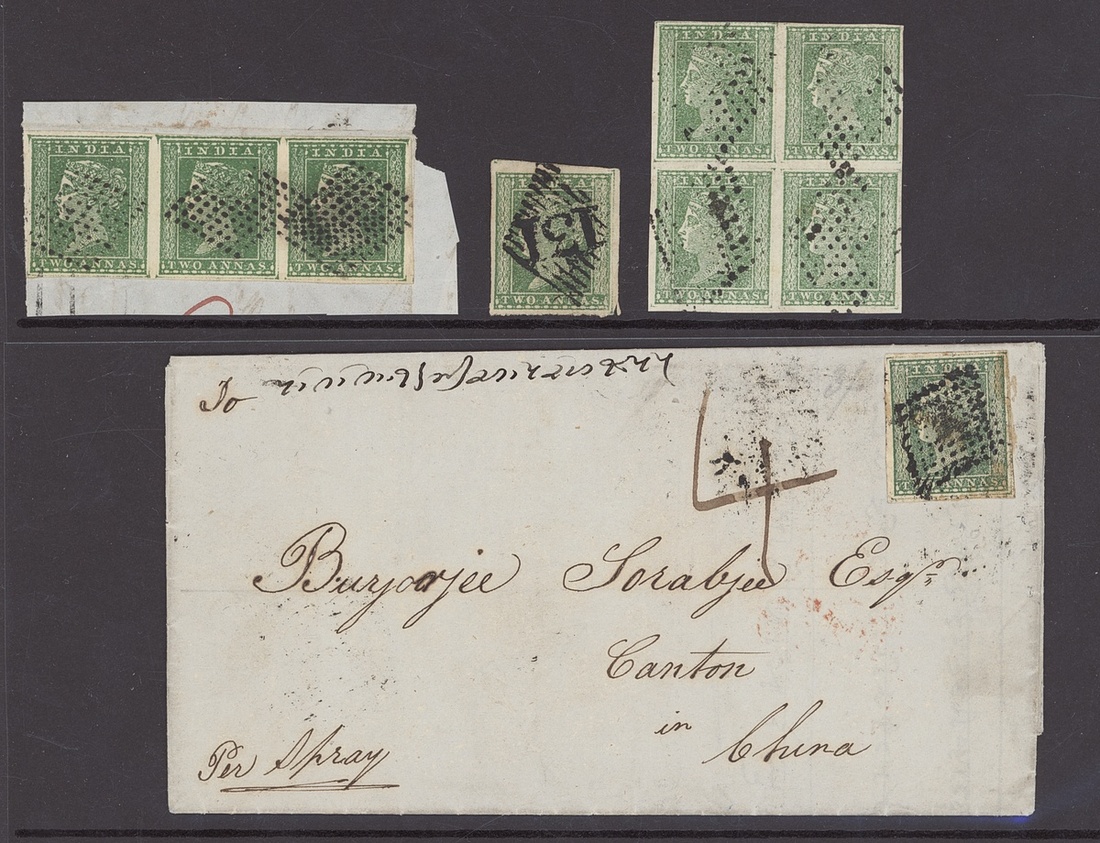 INDIA INDIA INDIA
TWO ANNAS TWO ANNAS TWO ANNAS
INDIA
131
TWO ANNAS
INDIA INDIA
TWO ANNAS TWO ANNAS
INDIA INDIA
TWO ANNAS TWO ANNAS
To
INDIA
TWO ANNAS
4
Burjorjee Sorabjee Esqr.
Canton
in
China
Per Spray